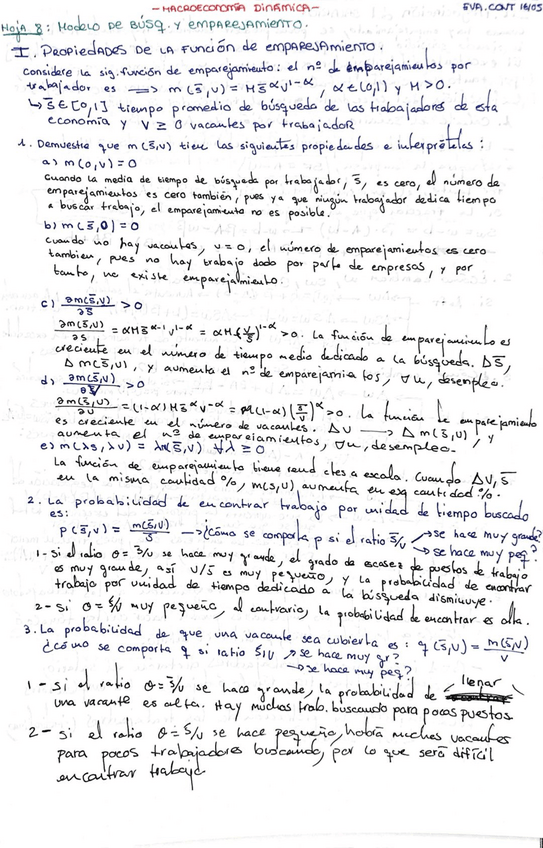 - MACROECONOMÍA DINÁMICA -
EVA. CONT 16/05
Hoja 8: MODELO DE BÚSQ. Y EMPAREJAMIENTO.
I. PROPIEDADES DE LA FUNCIÓN DE EMPAREJAMIENTO.
Considere la sig. función de emparejamiento: el nº de emparejamientos por
trabajador es → m(s̄,v) = H s̄^α v^1-α, α ∈ (0,1) y H > 0.
↳ s̄ ∈ [0,1] tiempo promedio de búsqueda de los trabajadores de esta
economía y v ≥ 0 vacantes por trabajador
1. Demuestre que m(s̄,v) tiene las siguientes propiedades e interprételas:
a) m(0,v) = 0
Cuando la media de tiempo de búsqueda por trabajador, s̄, es cero, el número de
emparejamientos es cero también, pues ya que ningún trabajador dedica tiempo
a buscar trabajo, el emparejamiento no es posible.
b) m(s̄,0) = 0
Cuando no hay vacantes, v = 0, el número de emparejamientos es cero
también, pues no hay trabajo dado por parte de empresas, y por
tanto, no existe emparejamiento.
c) ∂m(s̄,v)/∂s̄ > 0
∂m(s̄,v)/∂s = αH s̄^α-1 v^1-α = αH (v/s̄)^1-α > 0. La función de emparejamiento es
creciente en el número de tiempo medio dedicado a la búsqueda. Δs̄,
Δm(s̄,v), y aumenta el nº de emparejamientos, ∇u, desempleo.
d) ∂m(s̄,v)/∂v > 0
∂m(s̄,v)/∂v = (1-α) H s̄^α v^-α = H(1-α) (s̄/v)^α > 0. La función de emparejamiento
es creciente en el número de vacantes. Δv → Δm(s̄,v), y
aumenta el nº de emparejamientos, ∇u, desempleo.
e) m(λs, λv) = λm(s̄,v) ∀λ ≥ 0
La función de emparejamiento tiene rend ctes a escala. Cuando Δv,s̄
en la misma cantidad %, m(s,v) aumenta en esa cantidad %.
2. La probabilidad de encontrar trabajo por unidad de tiempo buscado
es:
p(s̄,v) = m(s̄,v)/s̄ → ¿Cómo se comporta p si el ratio s̄/v → se hace muy grande?
→ se hace muy peq?
1- Si el ratio θ = s̄/v se hace muy grande, el grado de escasez de puestos de trabajo
es muy grande, así v/s̄ es muy pequeño, y la probabilidad de encontrar
trabajo por unidad de tiempo dedicado a la búsqueda disminuye.
2- Si θ = s̄/v muy pequeño, al contrario, la probabilidad de encontrar es alta.
3. La probabilidad de que una vacante sea cubierta es: q(s̄,v) = m(s̄,v)/v
¿cómo se comporta q si ratio s̄/v → se hace muy gr?
→ se hace muy peq?
1- Si el ratio θ = s̄/v se hace grande, la probabilidad de llenar
una vacante es alta. Hay muchos trab. buscando para pocos puestos
2- Si el ratio θ = s̄/v se hace pequeño, habrá muchas vacantes
para pocos trabajadores buscando, por lo que será difícil
encontrar trabajo